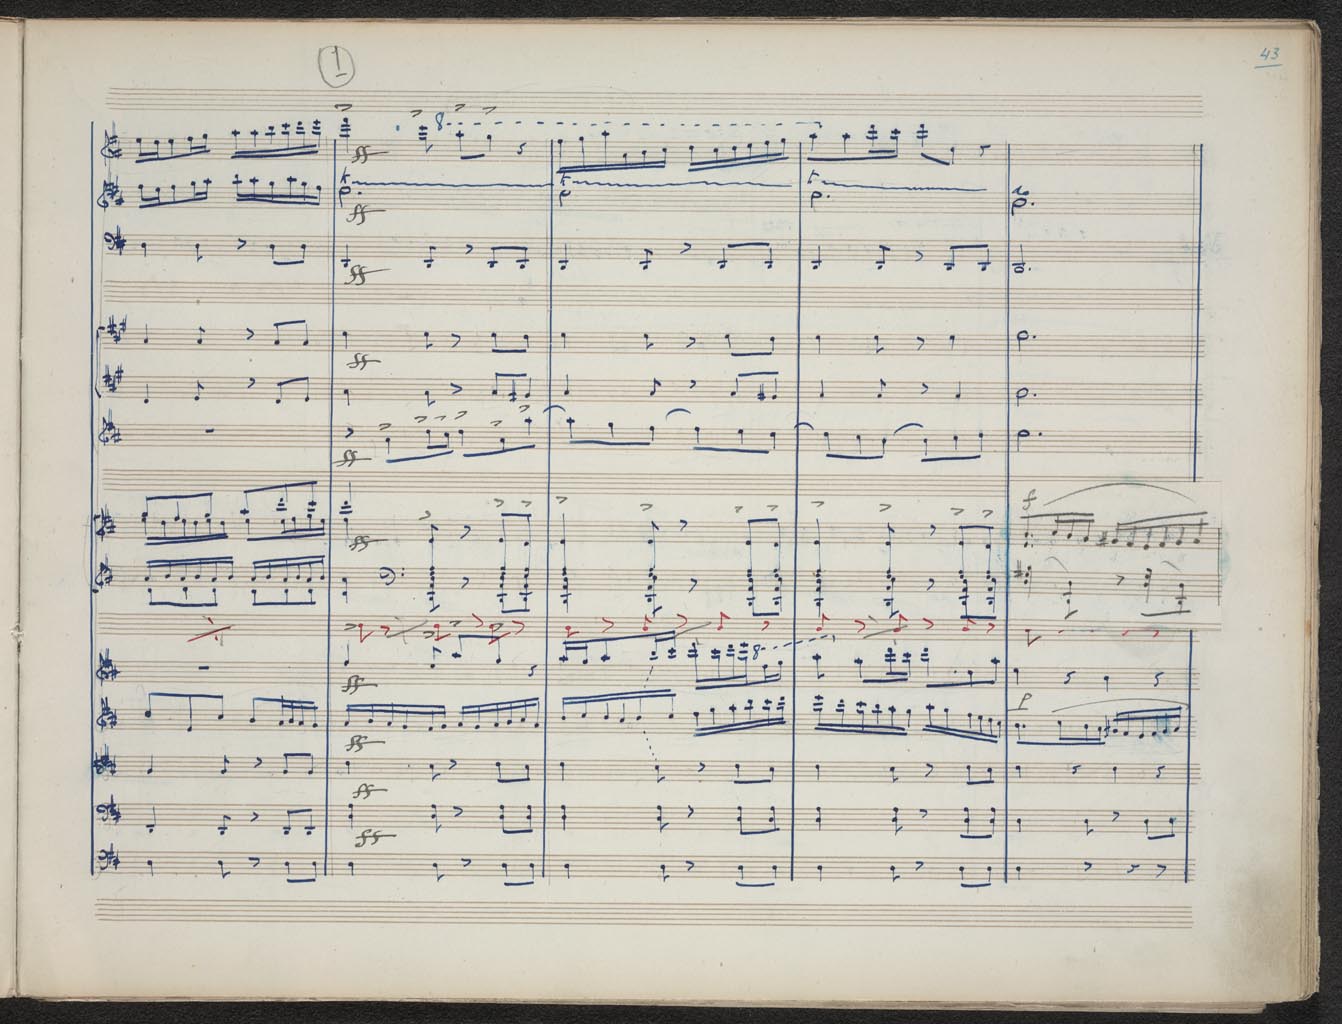 1
43
8
ff
ff
ff
ff
ff
f
ff
8
ff
p
ff
ff
ff